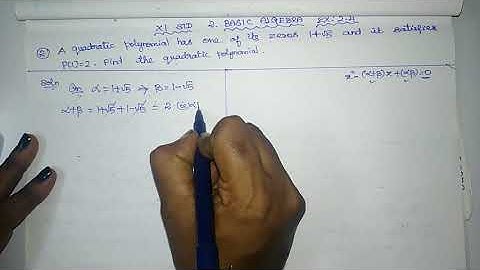 XI STD 2. BASIC ALGEBRA EX: 2.4
② A quadratic polynomial has one of its zeros 1+√5 and it satisfies
P(1)=2. Find the quadratic polynomial.
Soln: α=1+√5 ⇒ β=1-√5
x²-(α+β)x+(αβ)=0
α+β = 1+√5+1-√5 = 2